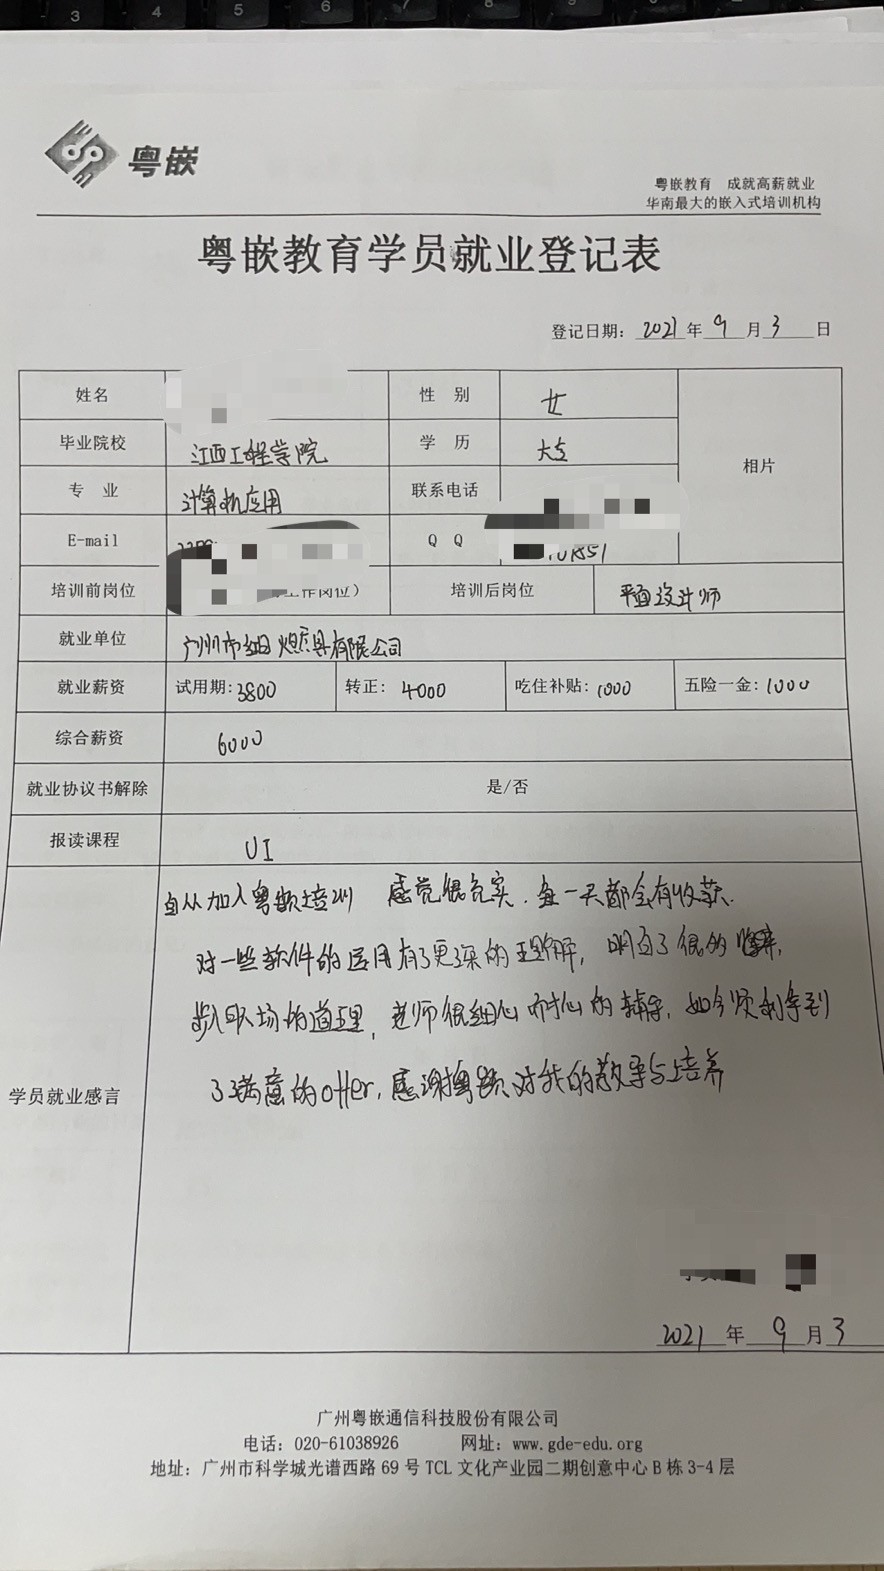 3 4 5 6 7 8 9
粤嵌
粤嵌教育 成就高薪就业
华南最大的嵌入式培训机构
粤嵌教育学员就业登记表
登记日期: 2021 年 9 月 3 日
姓名 性 别 女 相片
毕业院校 江西工程学院 学 历 大专
专 业 计算机应用 联系电话
E-mail Q Q
培训前岗位 工作岗位） 培训后岗位 平面设计师
就业单位 广州市 有限公司
就业薪资 试用期: 3800 转正: 4000 吃住补贴: 1000 五险一金: 1000
综合薪资 6000
就业协议书解除 是/否
报读课程 UI
学员就业感言
自从加入粤嵌培训 感觉很充实. 每一天都会有收获.
对一些软件的运用有了更深的理解, 明白了很多
职场的道理, 老师很细心耐心的辅导, 如今顺利拿到
了满意的offer, 感谢粤嵌对我的教导与培养
2021 年 9 月 3
广州粤嵌通信科技股份有限公司
电话: 020-61038926 网址: www.gde-edu.org
地址: 广州市科学城光谱西路 69 号 TCL 文化产业园二期创意中心 B 栋 3-4 层